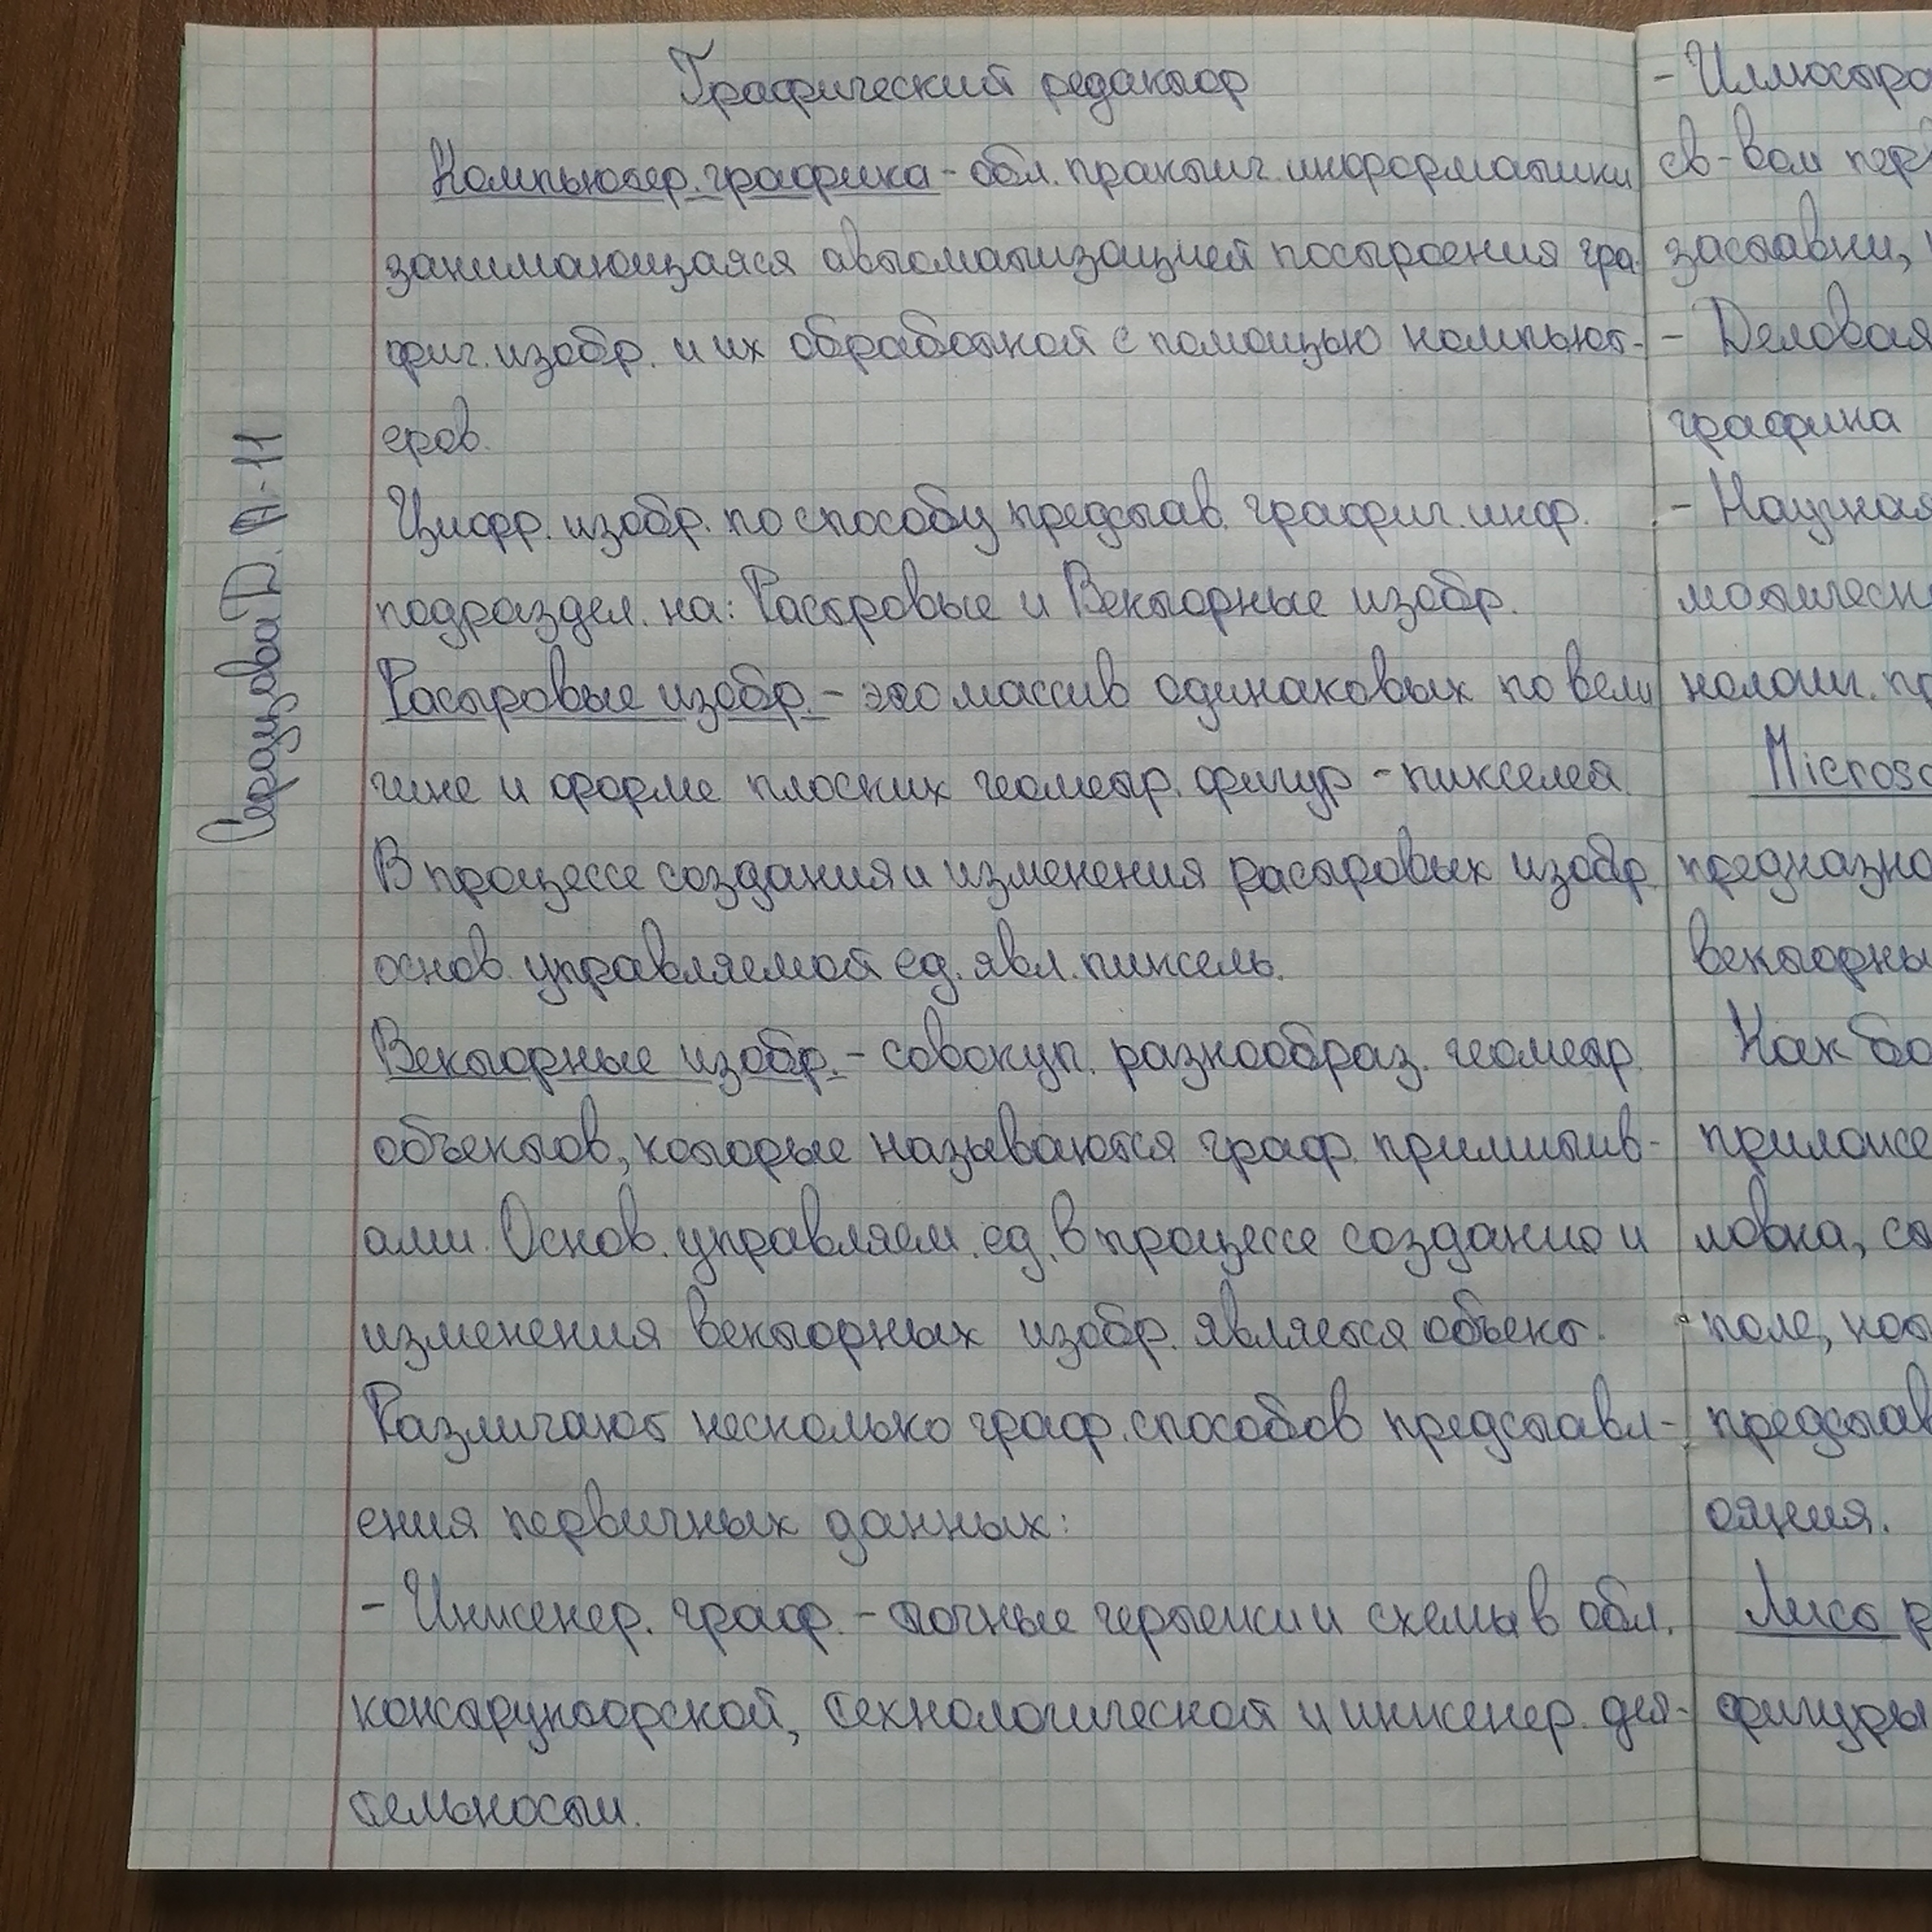 Графический редактор
Компьютер. графика - обл. практич. информатики
занимающаяся автоматизацией построения гра-
фич. изобр. и их обработкой с помощью компьют-
еров.
Цифр. изобр. по способу представ. графич. инф.
подраздел. на: Растровые и Векторные изобр.
Растровые изобр. - это массив одинаковых по вели
чине и форме плоских геометр. фигур - пикселей.
В процессе создания и изменения растровых изобр.
основ. управляемой ед. явл. пиксель.
Векторные изобр. - совокуп. разнообраз. геометр.
объектов, которые называются граф. примитив-
ами. Основ. управляем. ед. в процессе создание и
изменения векторных изобр. является объект.
Различают несколько граф. способов представл-
ения первичных данных:
- Инженер. граф. - точные чертежи и схемы в обл.
конструкторской, технологической и инженер. дея-
тельности.
- Иллюстра
св-вом пер
заставки,
- Деловая
графика
- Научная
матическ
нологич. пр
Microso
предназна
векторны
Как бо
приложе
ловка, ст
поле, кот
представ
ояния.
Лист р
фигуры
Д. А-11